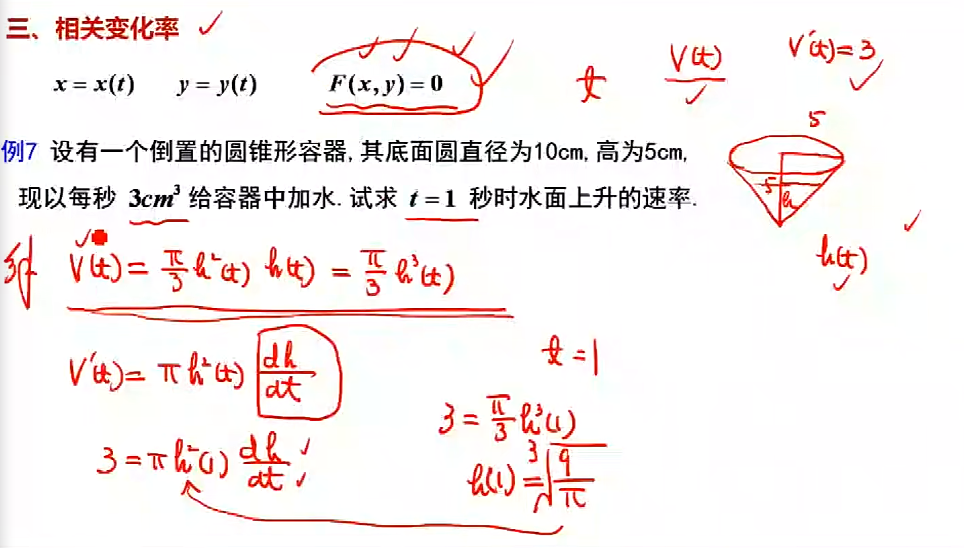 三、相关变化率 ✓
x = x(t) y = y(t) F(x, y) = 0 t V(t) V'(t)=3
例7 设有一个倒置的圆锥形容器,其底面圆直径为10cm,高为5cm,
现以每秒 3cm³ 给容器中加水.试求 t = 1 秒时水面上升的速率.
5
5 h
h(t)
V(t) = π/3 h²(t) h(t) = π/3 h³(t)
V'(t) = π h²(t) dh/dt
3 = π h²(1) dh/dt
t = 1
3 = π/3 h³(1)
h(1) = ∛(9/π)